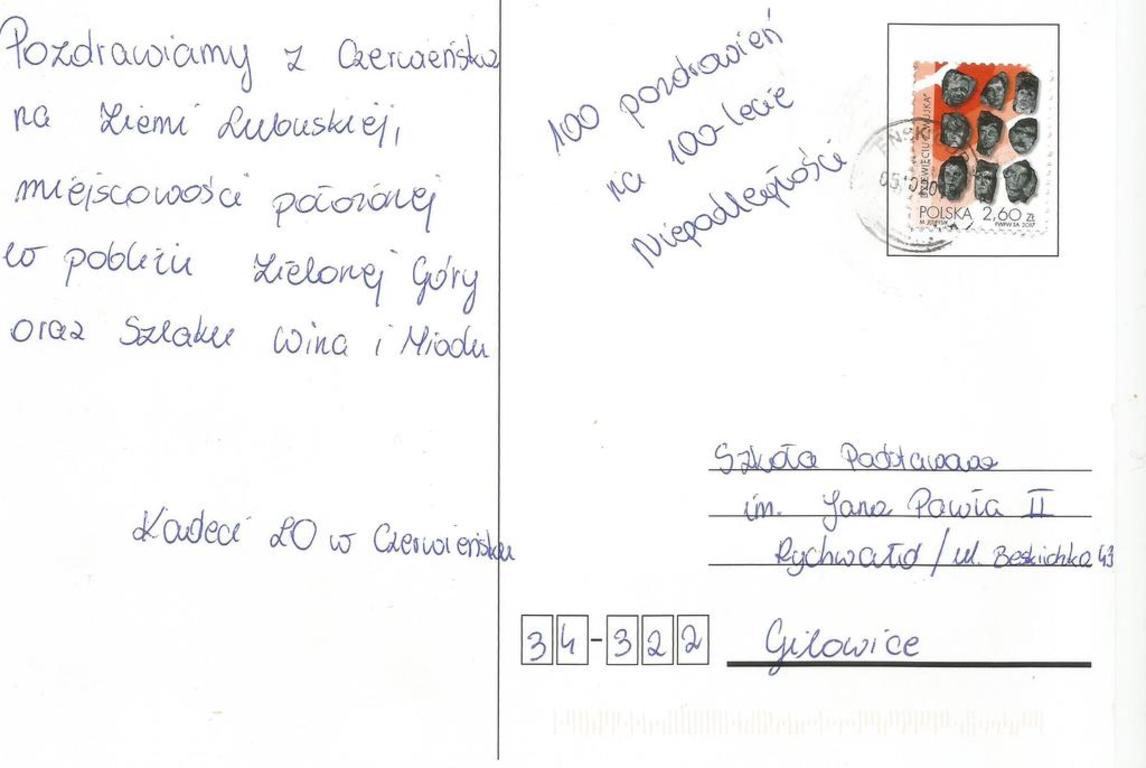 Pozdrawiamy z Czerwieńska
na Ziemi Lubuskiej,
miejscowości położonej
w pobliżu Zielonej Góry
oraz Szlaku Wina i Miodu
Kadeci LO w Czerwieńsku
100 pozdrowień
na 100-lecie
Niepodległości
POLSKA 2,60 zł
PWPW SA 2017
Szkoła Podstawowa
im. Jana Pawła II
Rychwałd / ul. Beskidzka 43
34-322 Gilowice